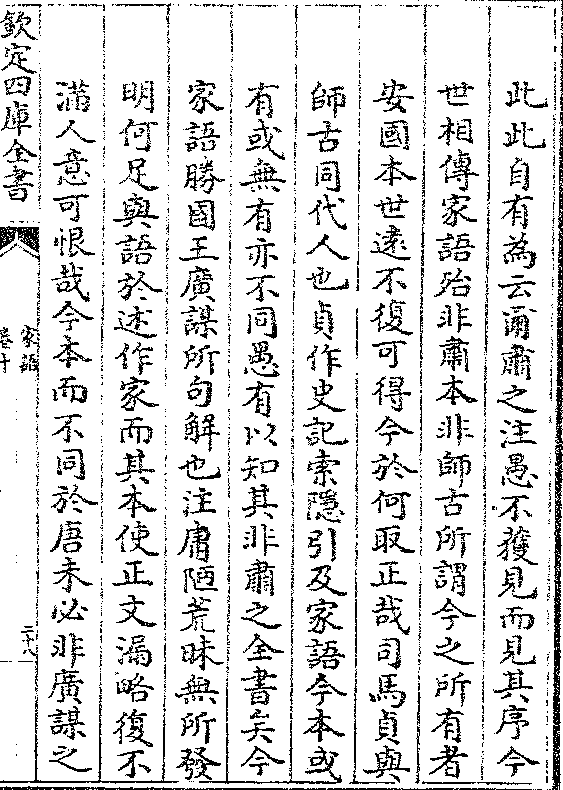 此此自有為云甬肅之注愚不獲見而見其序今
世相傳家語殆非肅本非師古所謂今之所有者
安國本世遠不復可得今於何取正哉司馬貞與
師古同代人也貞作史記索隱引及家語今本或
有或無有亦不同愚有以知其非肅之全書矣今
家語勝國王廣謀所句解也注庸陋荒昧無所發
明何足與語於述作家而其本使正文漏略復不
滿人意可恨哉今本而不同於唐未必非廣謀之
欽定四庫全書
家語
卷十
二十八